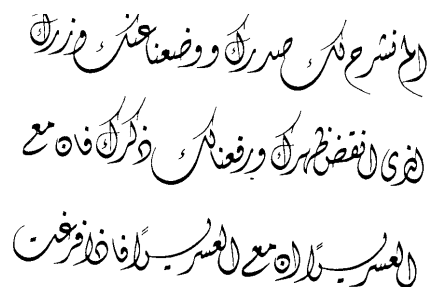 الم نشرح لک صدرک ووضعنا عنک وزرک
الذی انقض ظهرک ورفعنا لک ذکرک فان مع
العسر یسرًا ان مع العسر یسرًا فاذا فرغت